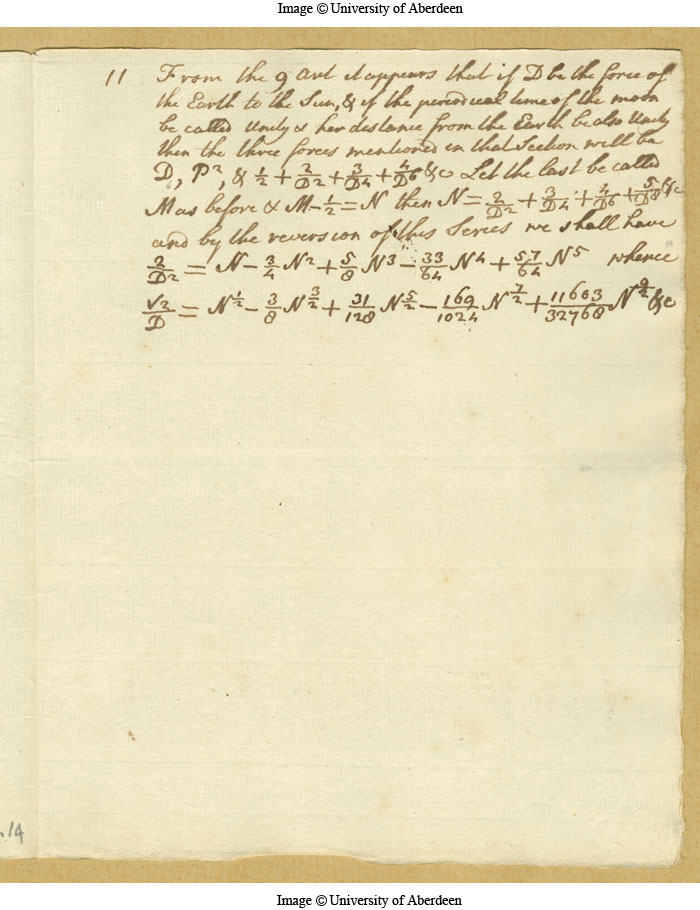 Image © University of Aberdeen
11 From the 9 Art it appears that if D be the force of
the Earth to the Sun, & if the periodical time of the moon
be called Unity & her distance from the Earth be also Unity
then the three forces mentioned in that Section will be
D, P², & 1/2 + 2/D2 + 3/D4 + 4/D6 &c Let the last be called
M as before & M - 1/2 = N then N = 2/D2 + 3/D4 + 4/D6 + 5/D8 &c
and by the reversion of this Series we shall have
2/D2 = N - 3/4 N2 + 5/8 N3 - 33/64 N4 + 57/64 N5 whence
√2/D = N 1/2 - 3/8 N 3/2 + 31/128 N 5/2 - 169/1024 N 7/2 + 11603/32768 N 9/2 &c
14
Image © University of Aberdeen